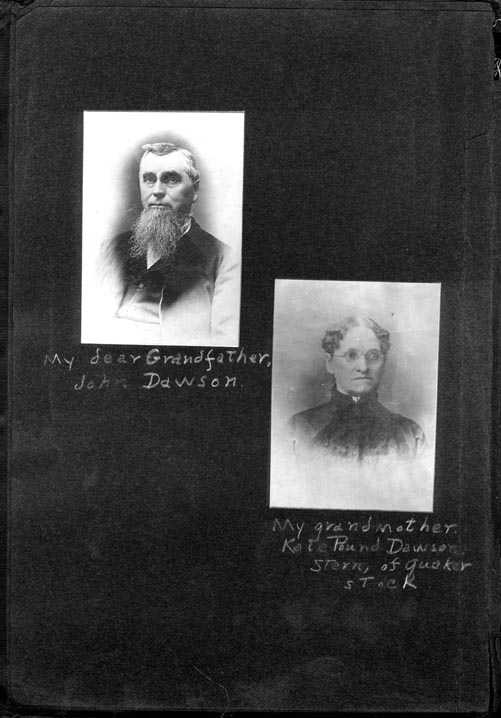 My dear Grandfather,
John Dawson.
My grandmother.
Kate Pound Dawson,
Stern, of Quaker
sTock